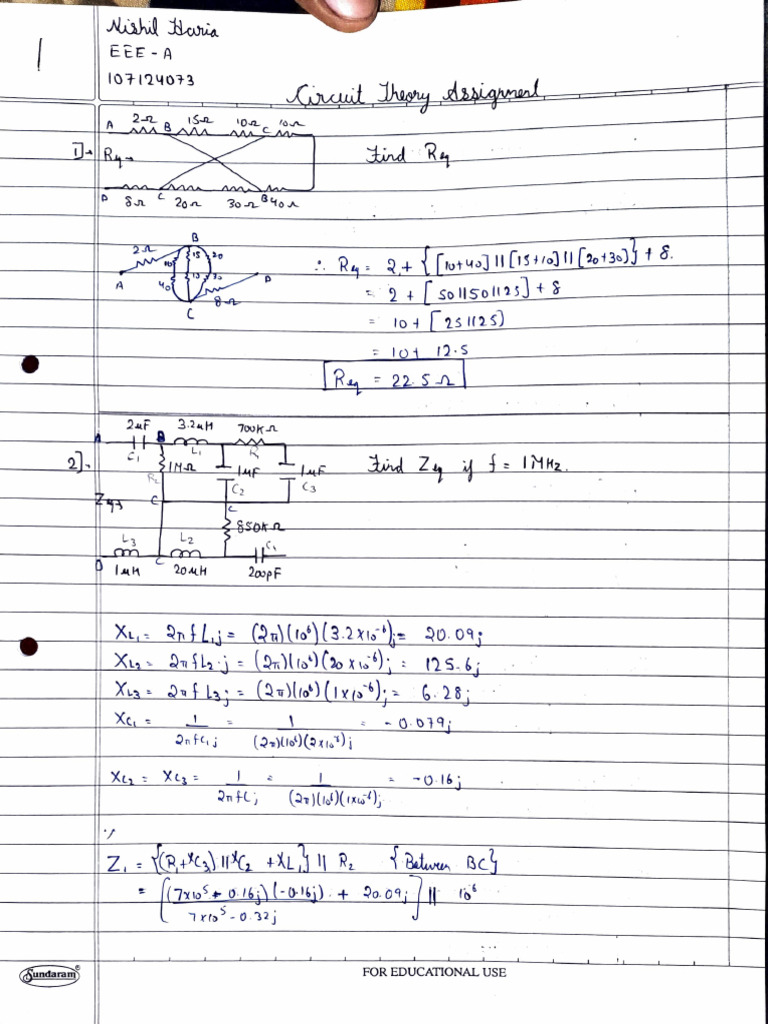 1
Nishil Haria
EEE - A
107124073
Circuit Theory Assignment
A 2Ω B 15Ω 10Ω C 10Ω
1] → Req→ Find Req
D 8Ω C 20Ω 30Ω B 40Ω
B
2Ω 10 15 20
A 40 10 30 D
8Ω
C
∴ Req = 2 + {[10+40] || [15+10] || [20+30]} + 8.
= 2 + [50||50||25] + 8
= 10 + [25||25]
= 10 + 12.5
Req = 22.5 Ω
2μF 3.2μH 700KΩ
A B
C1 L1 R
2]. 1MΩ 1μF 1μF Find Zeq if f = 1MHz.
R2 C2 C3
Zeq→ C C
850KΩ
L3 L2 C1
D C
1μH 20μH 200pF
XL1 = 2πfL1j = (2π)(10⁶)(3.2×10⁻⁶)j = 20.09j
XL2 = 2πfL2.j = (2π)(10⁶)(20×10⁻⁶)j = 125.6j
XL3 = 2πfL3j = (2π)(10⁶)(1×10⁻⁶)j = 6.28j
XC1 = 1/2πfC1j = 1/(2π)(10⁶)(2×10⁻⁶)j = -0.079j
XC2 = XC3 = 1/2πfCj = 1/(2π)(10⁶)(1×10⁻⁶)j = -0.16j
Z1 = {(R1+XC3) || XC2 + XL1} || R2 {Between BC}
= [(7×10⁵ - 0.16j)(-0.16j)/7×10⁵ - 0.32j + 20.09j] || 10⁶
Sundaram®
FOR EDUCATIONAL USE